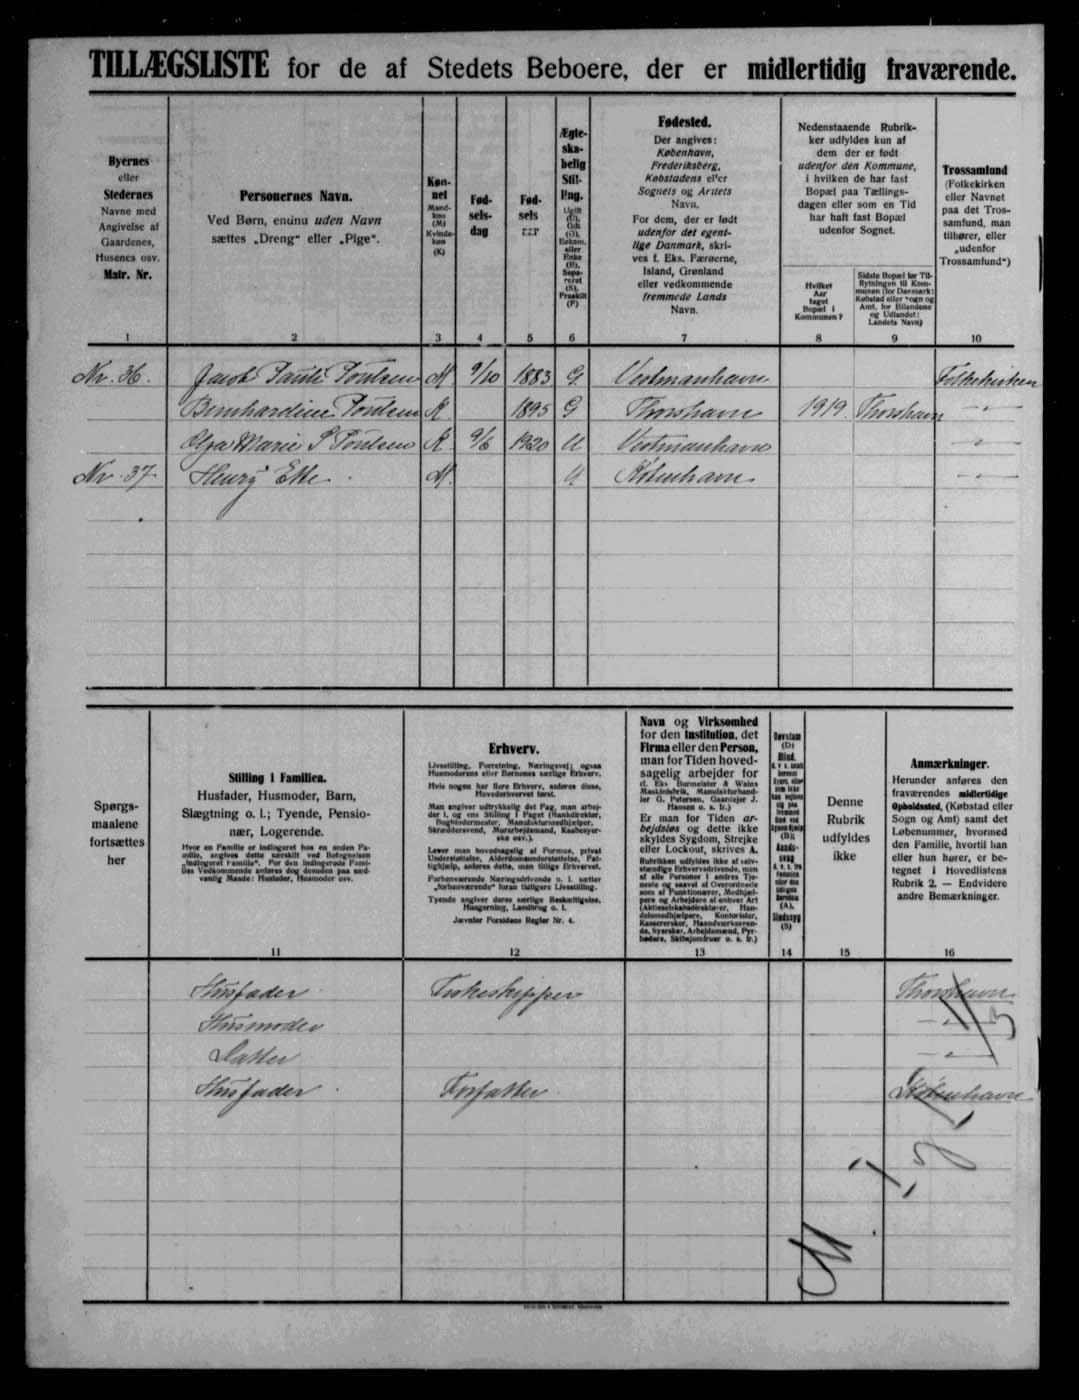 TILLÆGSLISTE for de af Stedets Beboere, der er midlertidig fraværende.
Byernes
eller
Stedernes
Navne med
Angivelse af
Gaardenes,
Husenes osv.
Matr. Nr.
1
Personernes Navn.
Ved Børn, endnu uden Navn
sættes „Dreng“ eller „Pige“.
2
Køn-
net
Mand-
køn
(M)
Kvinde-
køn
(K)
3
Fød-
sels-
dag
4
Fød-
sels
5
Ægte-
ska-
belig
Stil-
ling.
Ugift
(U),
Gift
(G),
Enkem.
eller
Enke
(E),
Sepa-
reret
(S),
Fraskilt
(F)
6
Fødested.
Der angives:
København,
Frederiksberg,
Købstadens eller
Sognets og Amtets
Navn.
For dem, der er født
udenfor det egent-
lige Danmark, skri-
ves f. Eks. Færøerne,
Island, Grønland
eller vedkommende
fremmede Lands
Navn.
7
Nedenstaaende Rubrik-
ker udfyldes kun af
dem der er født
udenfor den Kommune,
i hvilken de har fast
Bopæl paa Tællings-
dagen eller som en Tid
har haft fast Bopæl
udenfor Sognet.
Hvilket
Aar
taget
Bopæl i
Kommunen?
8
Sidste Bopæl før Til-
flytningen til Kom-
munen (for Danmark:
Købstad eller Sogn og
Amt, for Bilandene
og Udlandet:
Landets Navn)
9
Trossamfund
(Folkekirken
eller Navnet
paa det Tros-
samfund, man
tilhører, eller
„udenfor
Trossamfund“)
10
Nr. 36. Jacob Pauli Poulsen M. 9/10 1883 G. Vestmanhavn Folkekirken
Bernhardine Poulsen K. 1895 G Thorshavn 1919. Thorshavn — " —
Olga Marie S Poulsen K. 9/6 1920 U Vestmanhavn — " —
Nr. 37 Henry Ette M. U København — " —
Spørgs-
maalene
fortsættes
her
Stilling i Familien.
Husfader, Husmoder, Barn,
Slægtning o. l.; Tyende, Pensio-
nær, Logerende.
Hvor en Familie er indlogeret hos en anden Fa-
milie, angives dette særskilt ved Betegnelsen
„indlogeret Familie“. For den indlogerede Fami-
lies Vedkommende anføres dog desuden paa sæd-
vanlig Maade: Husfader, Husmoder osv.
11
Erhverv.
Livsstilling, Forretning, Næringsvej; ogsaa
Husmoderens eller Børnenes særlige Erhverv.
Hvis nogen har flere Erhverv, anføres disse,
Hovederhvervet først.
Man angiver udtrykkelig det Fag, man arbej-
der i, og ens Stilling i Faget (Bankdirektør,
Bogbindermester, Manufakturmedhjælper,
Skræddersvend, Murarbejdsmand, Kaabesyer-
ske osv.).
Lever man hovedsagelig af Formue, privat
Understøttelse, Alderdomsunderstøttelse, Fat-
tighjælp, anføres dette, men tillige Erhvervet.
Forhenværende Næringsdrivende o. l. sætter
„forhenværende“ foran tidligere Livsstilling.
Tyende angiver deres særlige Beskæftigelse,
Husgerning, Landbrug o. l.
Jævnfør Forsidens Regler Nr. 4.
12
Navn og Virksomhed
for den Institution, det
Firma eller den Person,
man for Tiden hoved-
sagelig arbejder for
(f. Eks Burmeister & Wains
Maskinfabrik, Manufakturhand-
ler G. Petersen, Gaardejer J.
Hansen o. s. fr.)
Er man for Tiden ar-
bejdsløs og dette ikke
skyldes Sygdom, Strejke
eller Lockout, skrives A.
Rubrikken udfyldes ikke af selv-
stændige Erhvervsdrivende, men
af alle Personer i andres Tje-
neste og saavel af Overordnede
som af Funktionærer, Medhjæl-
pere og Arbejdere af enhver Art
(Aktieselskabsdirektører, Han-
delsmedhjælpere, Kontorister,
Kassererske, Haandværkssven-
de, Syersker, Arbejdsmænd, Fyr-
bødere, Skibsjomfruer o. s. fr.)
13
Døvstum
(D)
Blind,
(B);
Aands-
svag
(A),
Sindssyg
(S)
14
Denne
Rubrik
udfyldes
ikke
15
Anmærkninger.
Herunder anføres den
fraværendes midlertidige
Opholdssted, (Købstad eller
Sogn og Amt) samt det
Løbenummer, hvormed
den Familie, hvortil han
eller hun hører, er be-
tegnet i Hovedlistens
Rubrik 2. — Endvidere
andre Bemærkninger.
16
Husfader Fiskeskipper Thorshavn
Husmoder — " —
Datter — " —
Husfader Forfatter København
M.